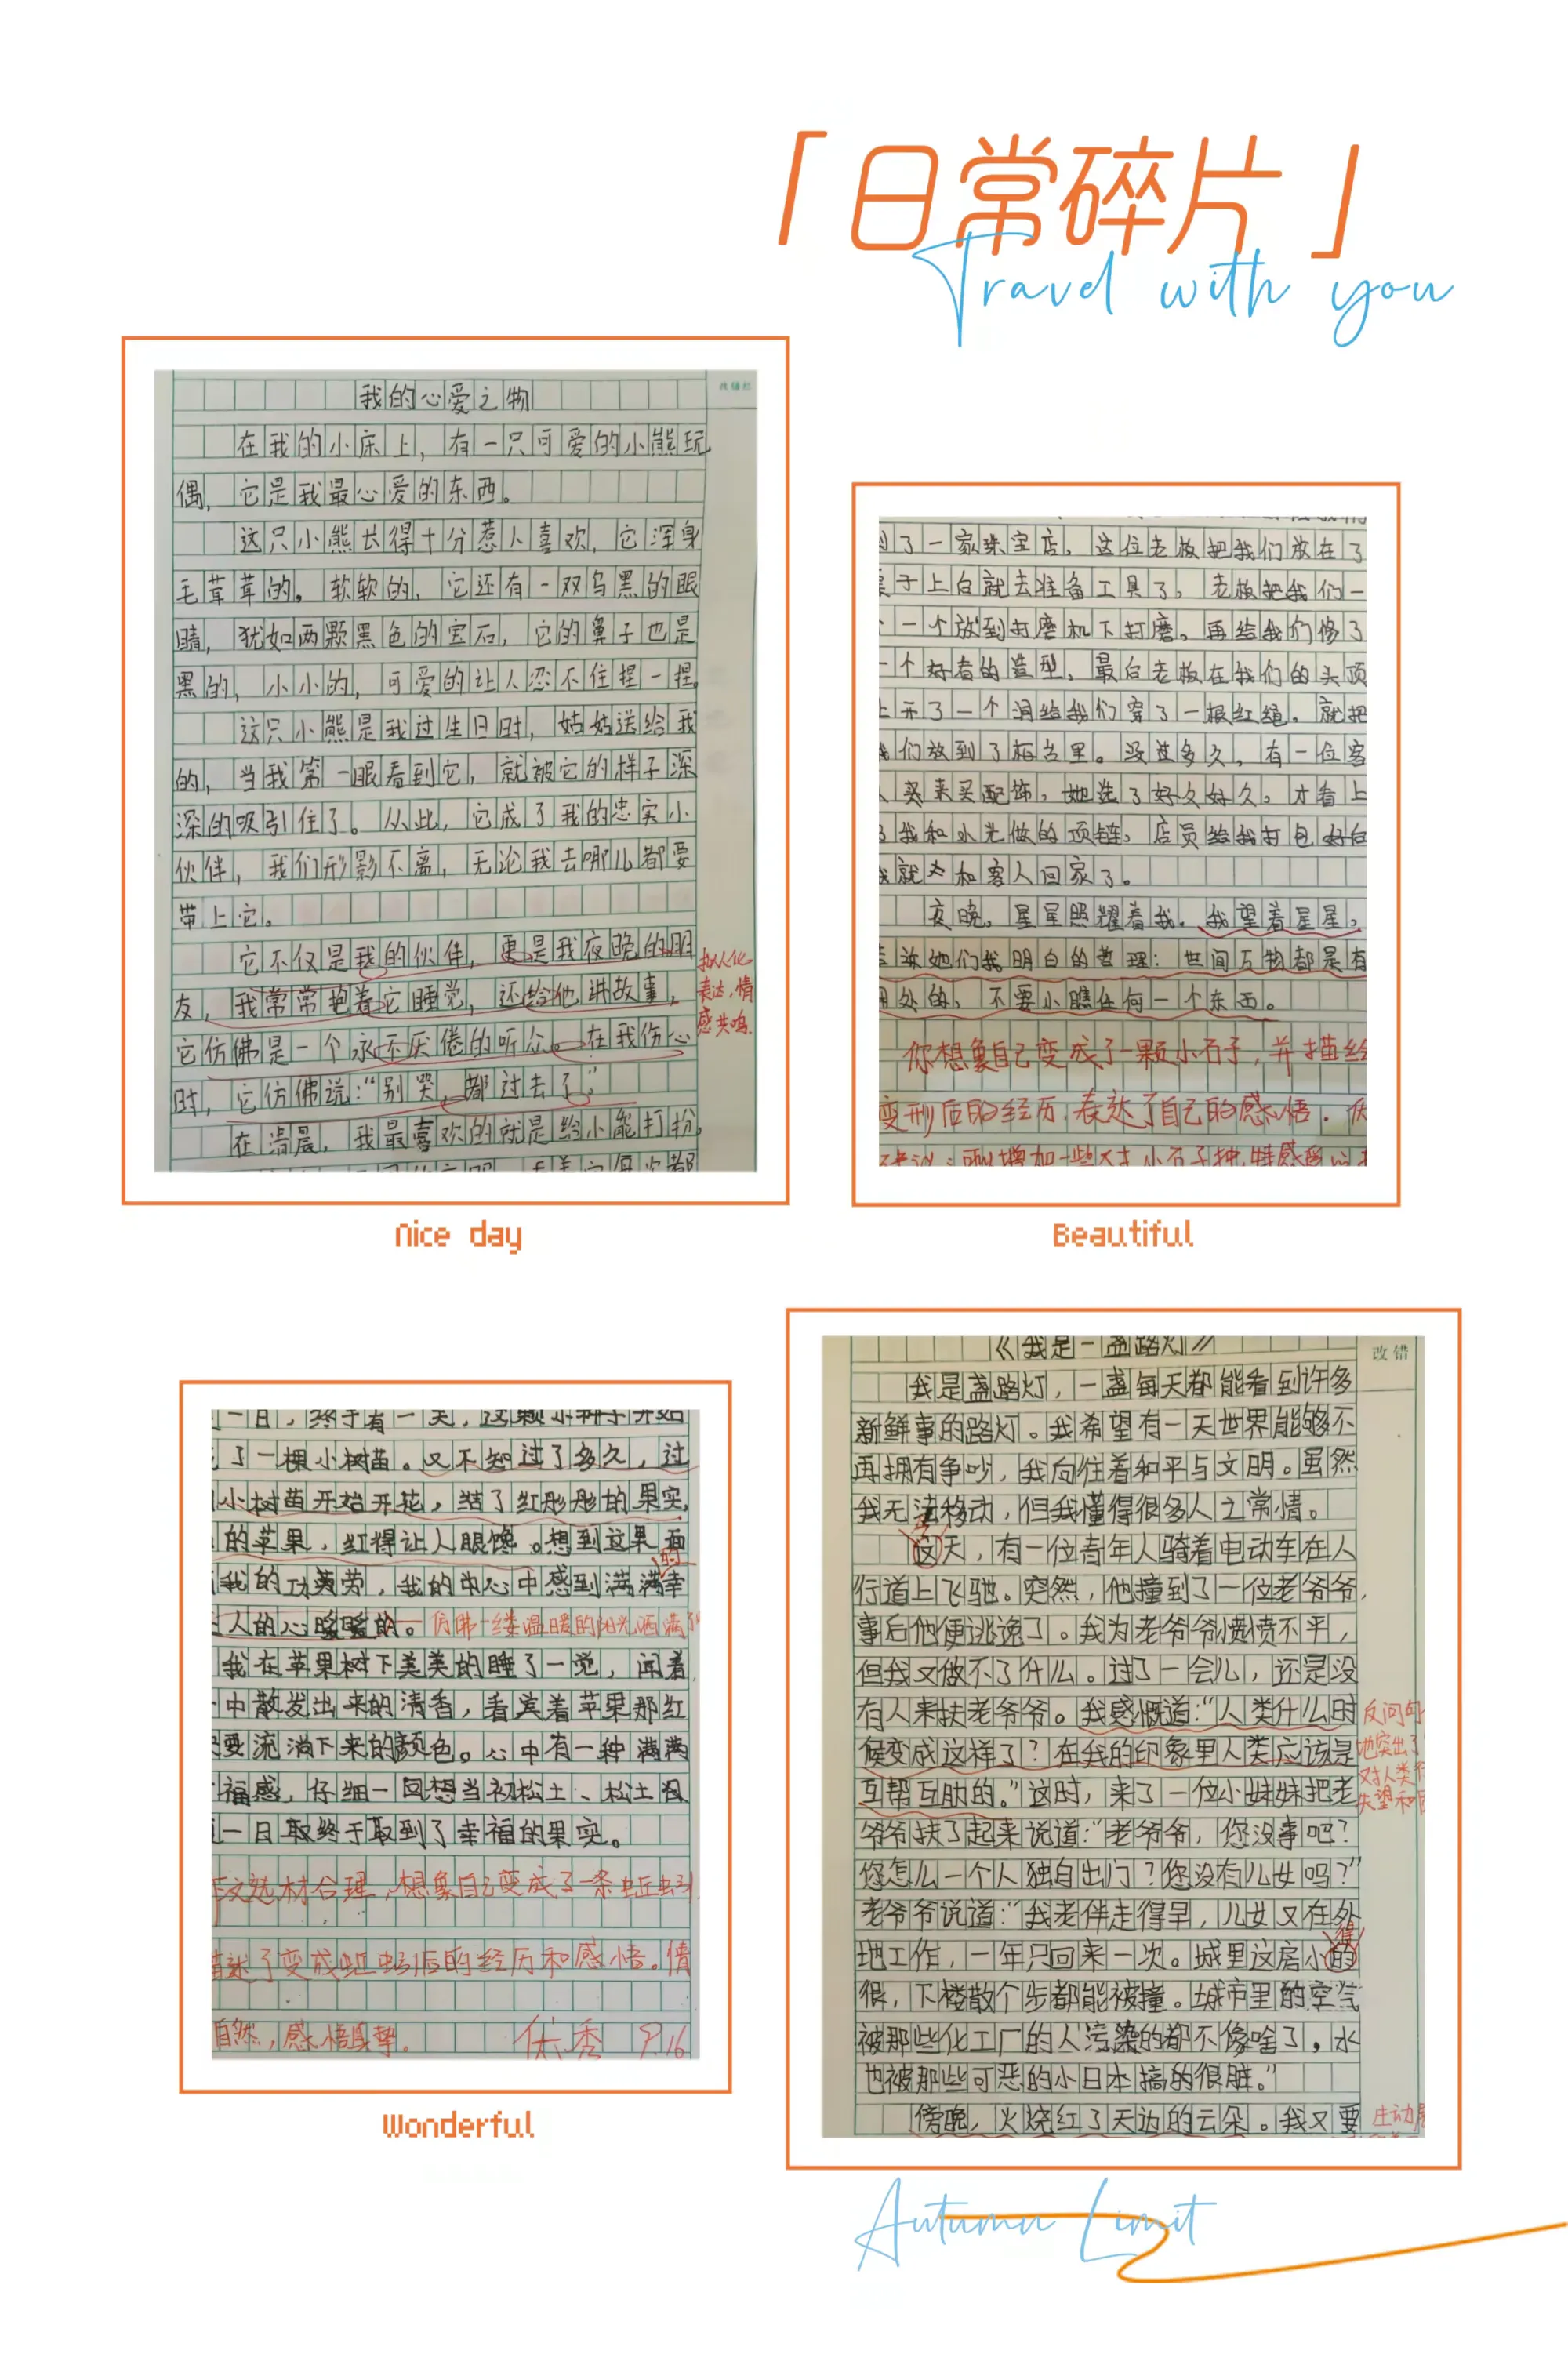 「日常碎片」
Travel with you
我的心爱之物
改错栏
在我的小床上，有一只可爱的小熊玩
偶，它是我最心爱的东西。
这只小熊长得十分惹人喜欢，它浑身
毛茸茸的。软软的，它还有一双乌黑的眼
睛，犹如两颗黑色的宝石，它的鼻子也是
黑的，小小的，可爱的让人忍不住捏一捏。
这只小熊是我过生日时，姑姑送给我
的，当我第一眼看到它，就被它的样子深
深的吸引住了。从此，它成了我的忠实小
伙伴，我们形影不离，无论我去哪儿都要
带上它。
它不仅是我的伙伴，更是我夜晚的朋
友，我常常抱着它睡觉，还给他讲故事，
它仿佛是一个永不厌倦的听众。在我伤心
时，它仿佛说：“别哭，都过去了。”
在清晨，我最喜欢的就是给小熊打扮，
拟人化
表达，情
感共鸣。
Nice day
了一家珠宝店。这位老板把我们放在了
子上白就去准备工具了。老板把我们一
一个放到打磨机下打磨。再给我们修了
一个好看的造型，最白老板在我们的头顶
上开了一个洞给我们穿了一根红绳。就把
我们放到了柜台里。没过多久，有一位客
买来买配饰，她选了好久好久。才看上
我和水光做的项链，店员给我打包好白
我就和客人回家了。
夜晚，星星照耀着我，我望着星星，
诉她们我明白的哲理：世间万物都是有
用处的，不要小瞧任何一个东西。
你想象自己变成了一颗小石子，并描绘
变形后的经历，表达了自己的感悟．
Beautiful
一日，终于有一天，这颗小种子开始
了一棵小树苗。又不知过了多久，过
小树苗开始开花，结了红彤彤的果实，
的苹果，红得让人眼馋。想到这果面
我的功劳，我的心中感到满满幸
的
人的心暖暖的。仿佛一缕温暖的阳光洒满了
我在苹果树下美美的睡了一觉，闻着
中散发出来的清香，看着苹果那红
要流淌下来的颜色。心中有一种满满
福感，仔细一回想当初松土、松土没
一日终于取到了幸福的果实。
文选材合理，想象自己变成了一条蚯蚓
描述了变成蚯蚓后的经历和感悟。情
自然，感悟真挚。 优秀 9.16
Wonderful
《我是一盏路灯》
改错
我是盏路灯，一盏每天都能看到许多
新鲜事的路灯。我希望有一天世界能够不
再拥有争吵，我向往着和平与文明。虽然
我无法移动，但我懂得很多人之常情。
这天，有一位青年人骑着电动车在人
行道上飞驰。突然，他撞到了一位老爷爷，
事后他便逃逸了。我为老爷爷愤愤不平，
但我又做不了什么。过了一会儿，还是没
有人来扶老爷爷。我感慨道：“人类什么时
候变成这样了？在我的印象里人类应该是
互帮互助的。”这时，来了一位小妹妹把老
爷爷扶了起来说道：“老爷爷，您没事吧？
您怎么一个人独自出门？您没有儿女吗？”
老爷爷说道：“我老伴走得早，儿女又在外
地工作，一年只回来一次。城里这房小的
得
很，下楼散个步都能被撞。城市里的空气
被那些化工厂的人污染的都不像啥了，水
也被那些可恶的小日本搞的很脏。”
傍晚，火烧红了天边的云朵。我又要
反问句
地突出了
对人类
失望和
生动
Autumn Limit